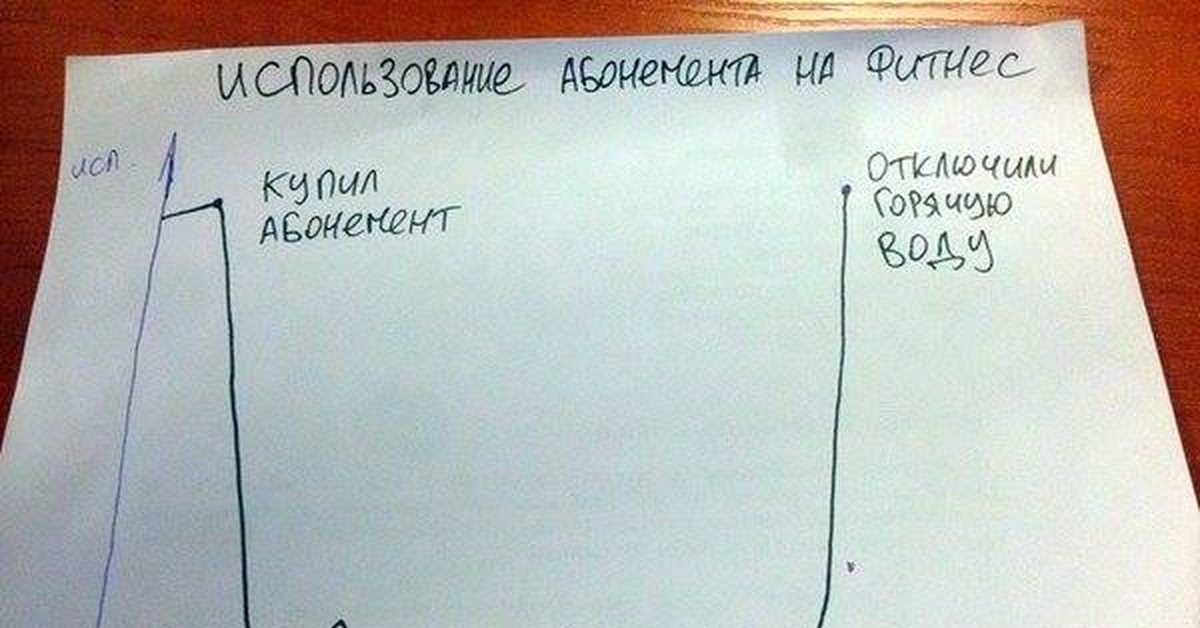 ИСПОЛЬЗОВАНИЕ АБОНЕМЕНТА НА ФИТНЕС
ИСП.
КУПИЛ
АБОНЕМЕНТ
ОТКЛЮЧИЛИ
ГОРЯЧУЮ
ВОДУ